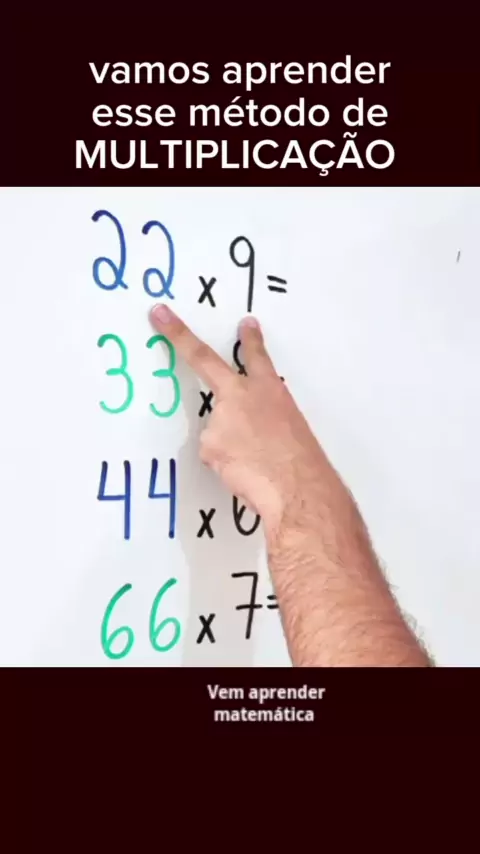 vamos aprender
esse método de
MULTIPLICAÇÃO
22 x 9 =
33 x
44 x
66 x 7 =
Vem aprender
matemática